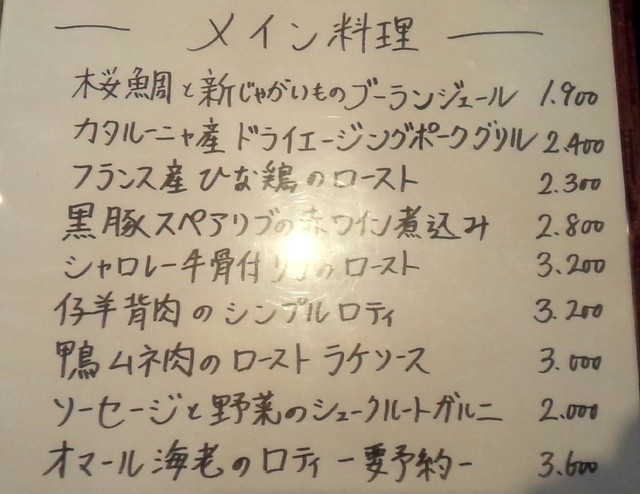 メイン料理
桜鯛と新じゃがいものブーランジェール 1.900
カタルーニャ産ドライエージングポークグリル 2.400
フランス産ひな鶏のロースト 2.300
黒豚スペアリブの赤ワイン煮込み 2.800
シャロレー牛骨付リブのロースト 3.200
仔羊背肉のシンプルロティ 3.200
鴨ムネ肉のロースト ラケソース 3.000
ソーセージと野菜のシュークルートガルニ 2.000
オマール海老のロティ ー要予約ー 3.600